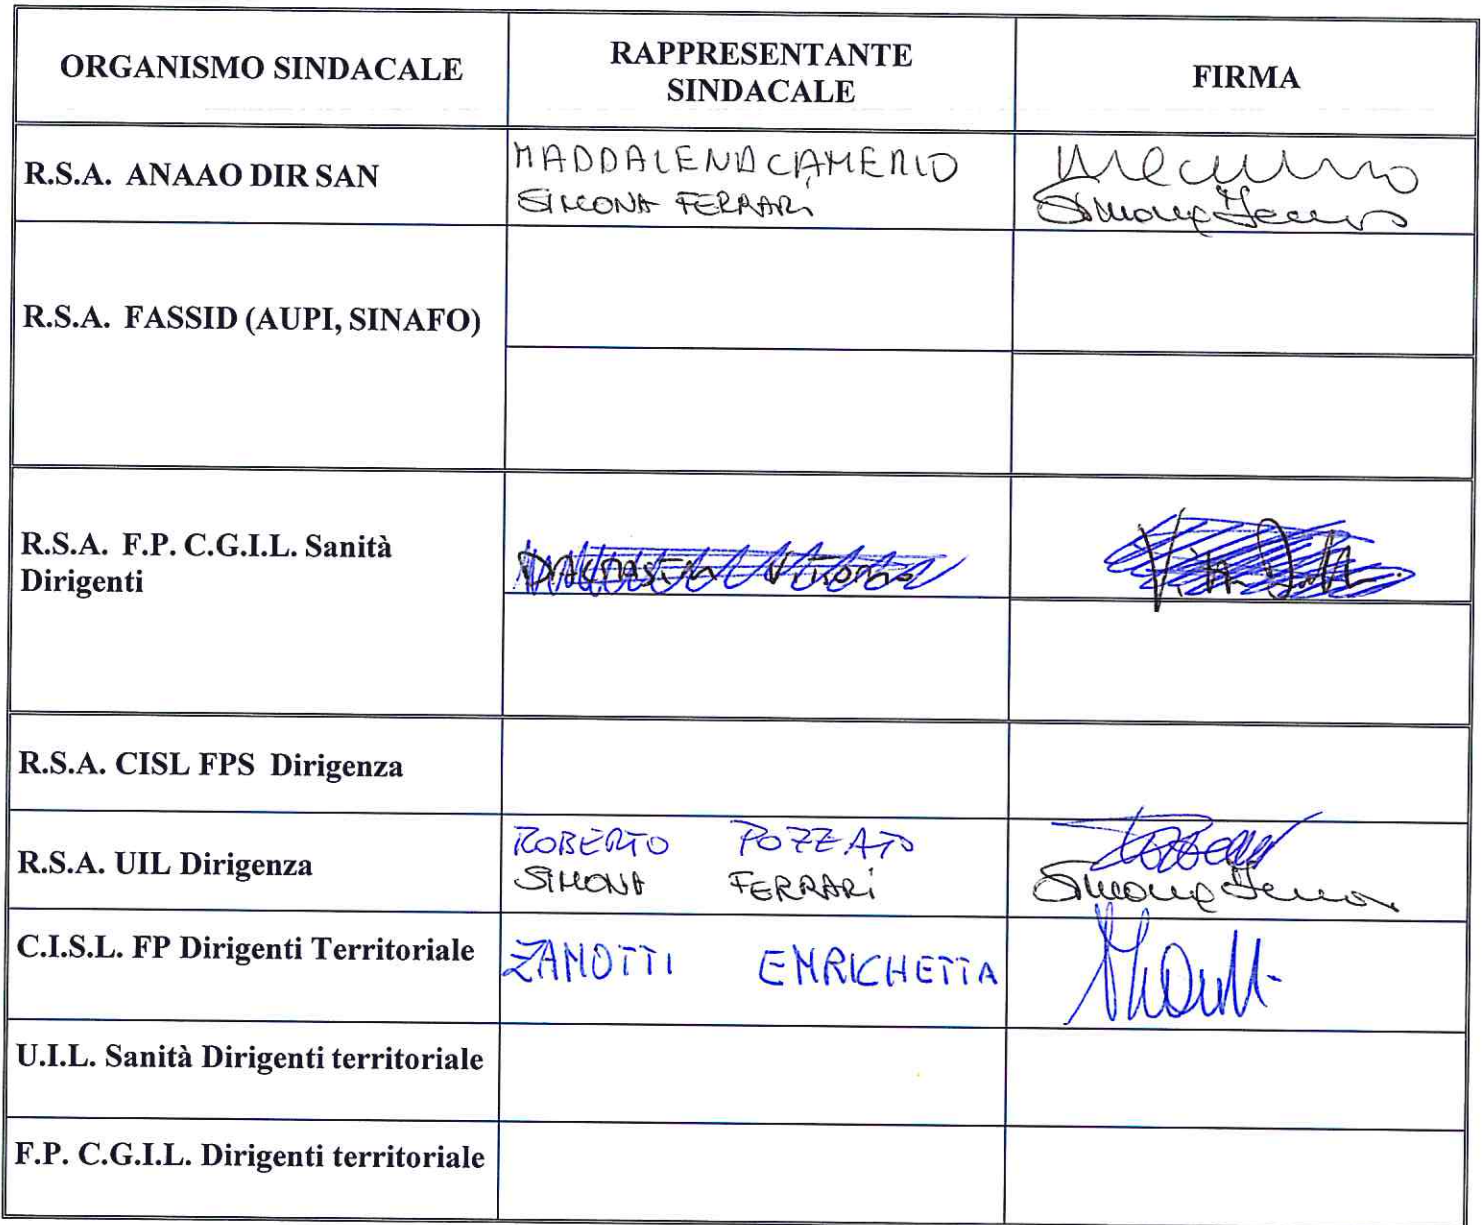 ORGANISMO SINDACALE
RAPPRESENTANTE
SINDACALE
FIRMA
R.S.A. ANAAO DIR SAN
MADDALENA CAMERIO
SIMONA FERRARI
Simona Ferrari
R.S.A. FASSID (AUPI, SINAFO)
R.S.A. F.P. C.G.I.L. Sanità
Dirigenti
R.S.A. CISL FPS Dirigenza
R.S.A. UIL Dirigenza
ROBERTO POZZATO
SIMONA FERRARI
Simona Ferrari
C.I.S.L. FP Dirigenti Territoriale
ZANOTTI ENRICHETTA
U.I.L. Sanità Dirigenti territoriale
F.P. C.G.I.L. Dirigenti territoriale